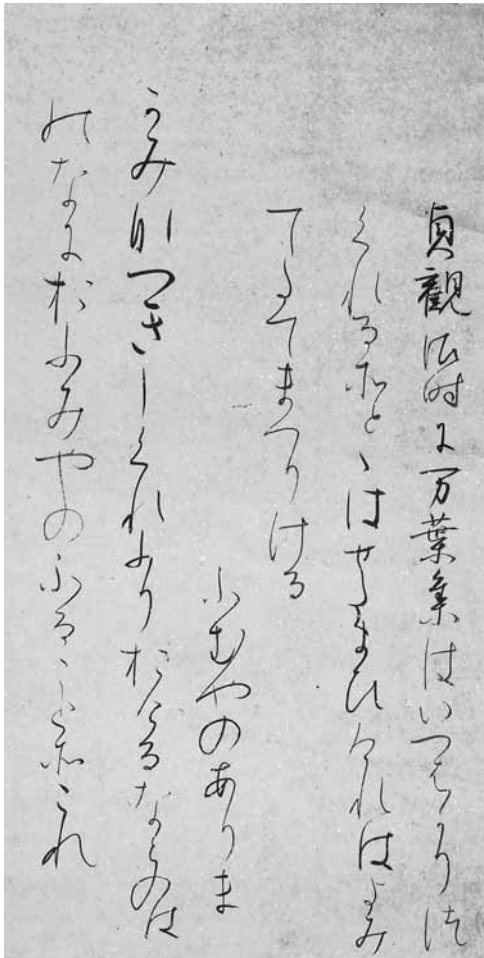 貞観御時に万葉集はいつはかりつ
くれるそとゝはせたまひけれはよみ
てたてまつりける
ふむやのあり
かみなつきしくれふりおけるならのは
のなにおふみやのふることそこれ